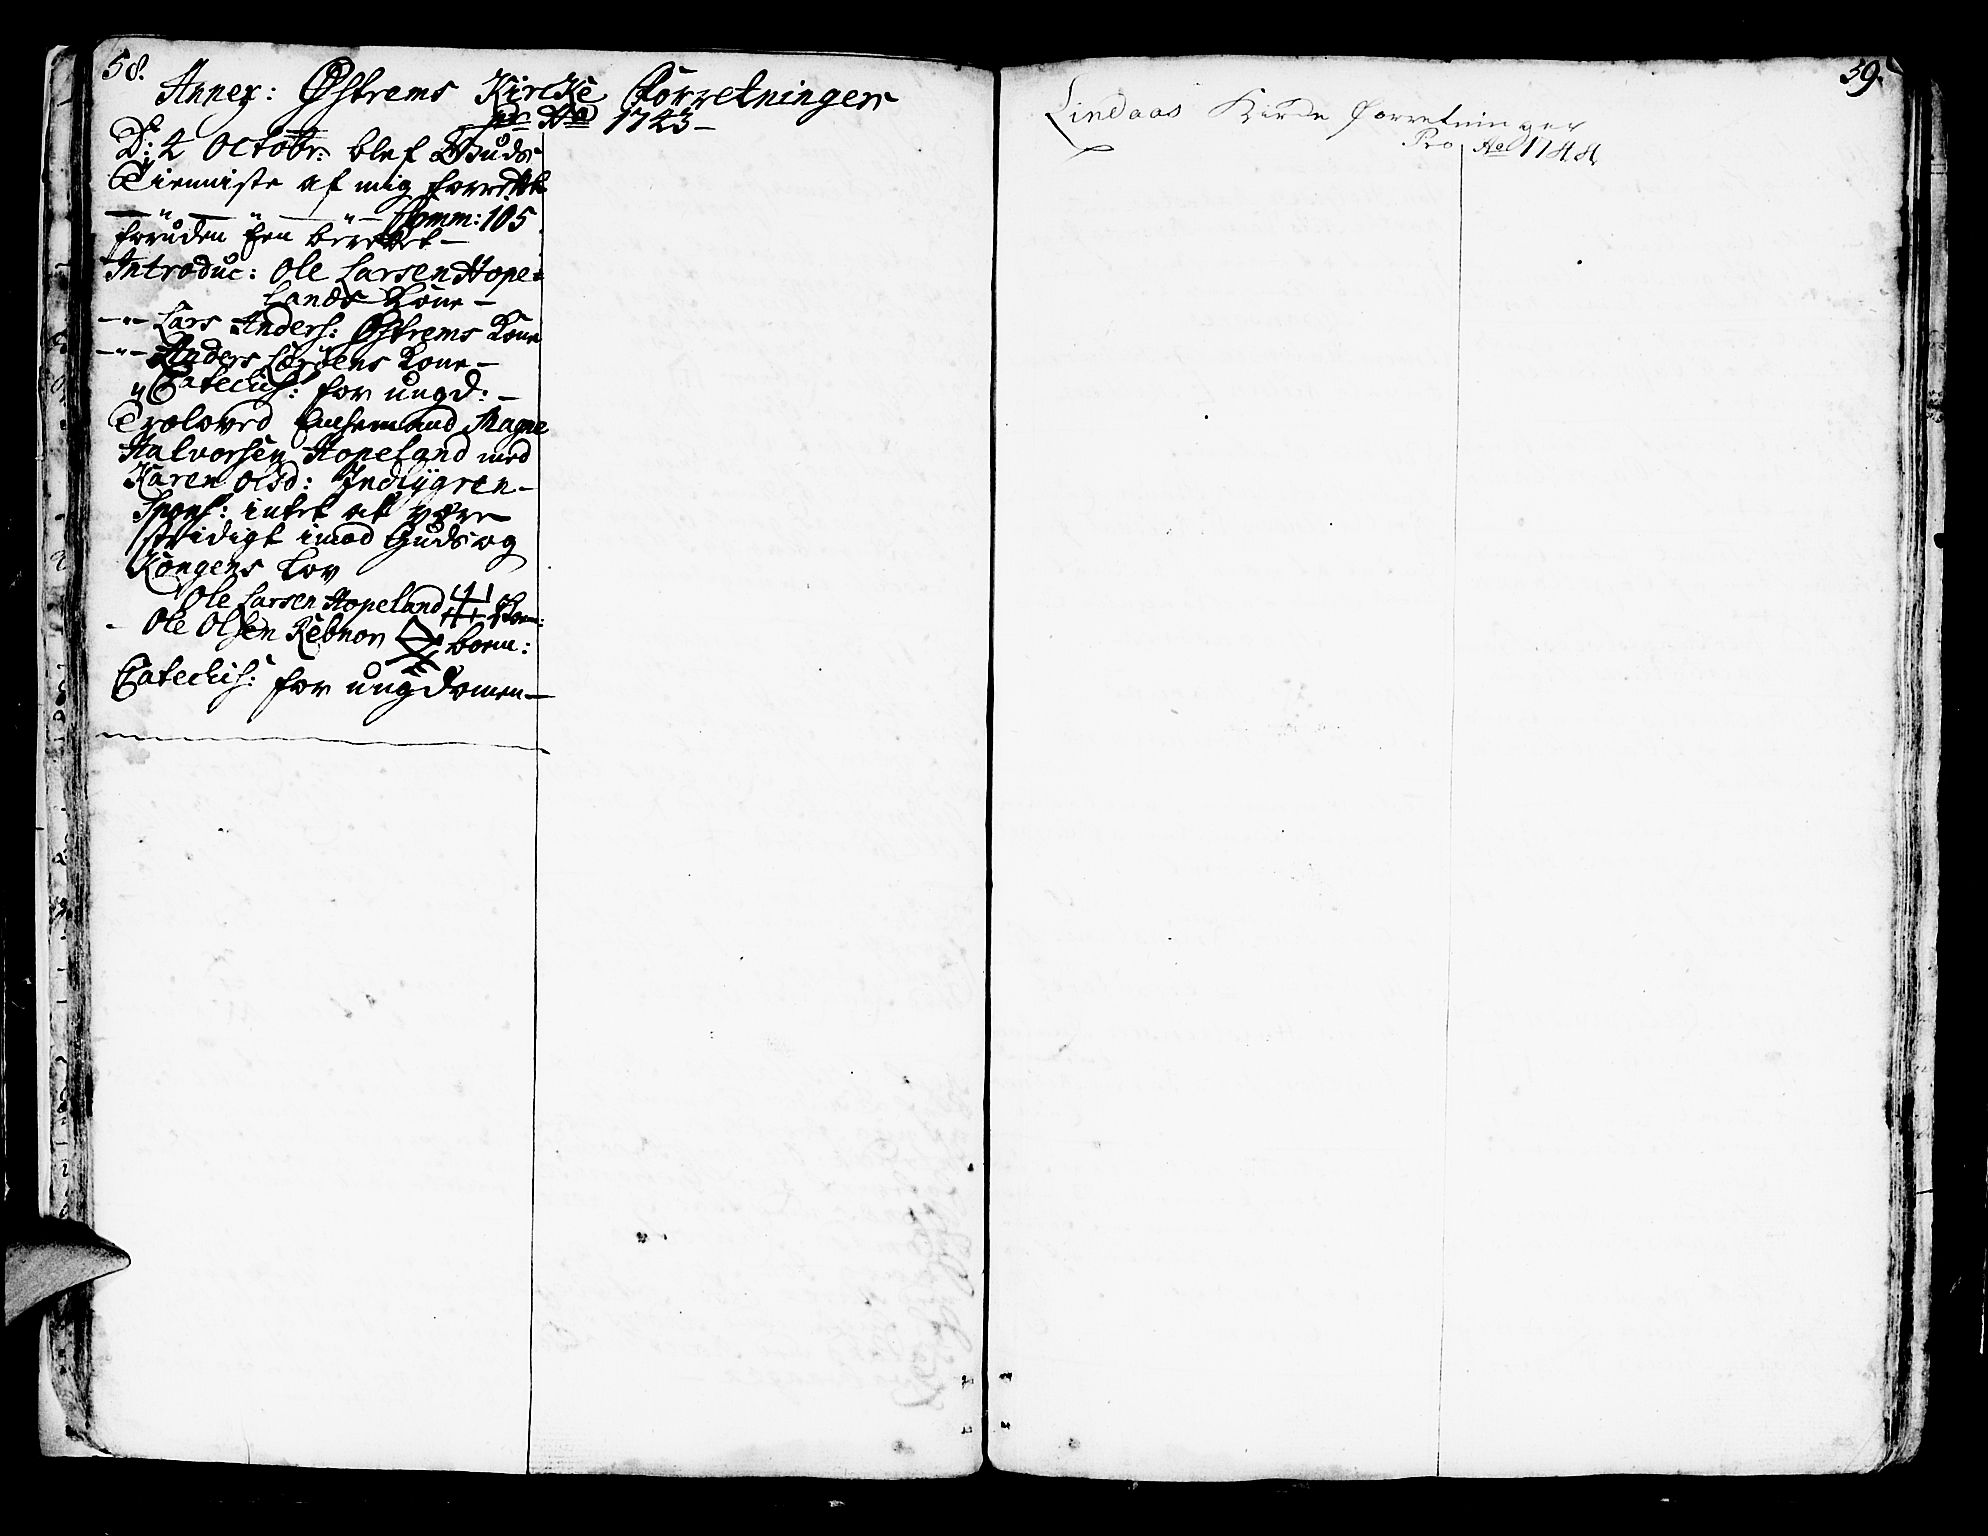 58.
Annex: Østrems Kircke Forretninger
pro Ao 1743 –
D: 4 Octobr: blef Guds
Tienniste af mig forrettet
– " – " – " – Comm: 105
foruden een berettet –
Introduc: Ole Larsen Hope-
lands Kone –
– " – Lars Anders: Østrems Kone
– " – Anders Kone –
" Catechis: for ungd: –
Troloved Enchemand Magne
Halvorsen Hopeland med
Karen Olsd: Indlygren –
Spons: intet at være
stridigt imod Guds og
Kongens Lov
Ole Larsen Hopeland
Ole Olsen Kebnor boem:
Catechis: for ungdomen –
59.
Lindaas Kirke forretninger
Pro Ao 1744